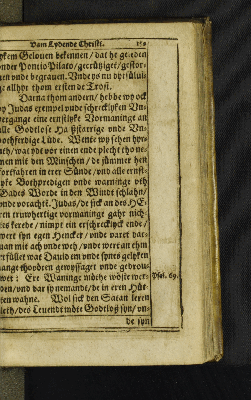 Vam Lydende Christi.
ykem Gelouen bekennen / dat he geleden
vnder Pontio Pilato / gecrütziget / gestor-
uen vnde begrauen. Vnde ys nu dyt
allhyr thom ersten de Trost.
Darna thom andern / hebbe wy ock
yp Judas exempel vnde schrecklyken Vn-
dergange eine ernstlyke Vormaninge an
alle Godtlose Halßstarrige vnde Vn-
bothferdige Lüde. Wente wy sehen hyr-
uth / wat vor einen ende plecht tho ne-
men mit den Minschen / de jümmer hen
forefahren in erer Sünde / vnd alle ernst-
lyke Bothpredigen vnde warninge vth
Gades Worde in den Windt schlahn /
vnde vorachtē. Judas / de sick an des HE-
ren truwhertige vormaninge gahr nich-
tes kerede / nimpt ein erschrecklyck ende /
wert syn egen Hencker / vnde varet dar-
uan mit ach vnde wch / vnde wert an ehm
erfüllet wat Dauid em vnde synes gelyken
lange thovören gewyssaget vnde gedrou-
wet: Ere Waninge möthe wöste wer-
den / vnd dar sy nemandt / de in eren Hüt-
ten wahne. Wol sick den Satan leren
leth / des Leuendt möte Godtloß syn / vn-
de syn
Psal. 69.